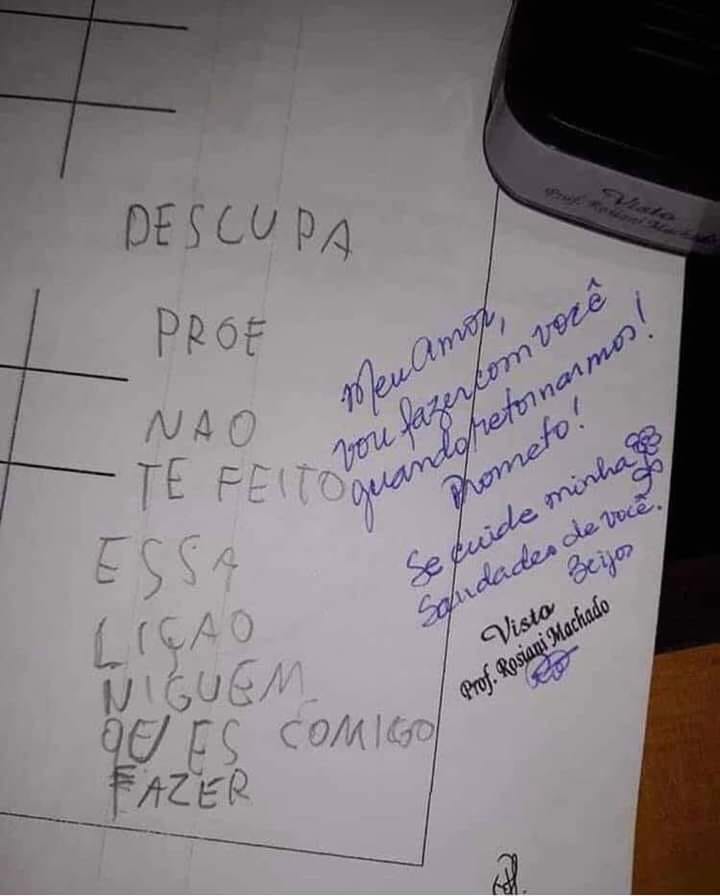 DESCUPA
PROE
NAO
TE FEITO
ESSA
LIÇAO
NIGUEM
QUES COMIGO
FAZER
Meu Amor,
vou fazer com você
quando retornarmos!
Prometo!
Se cuide minha
Saudades de você.
Beijos
Visto
Prof. Rosiani Machado
Visto
Prof. Rosiani Machado